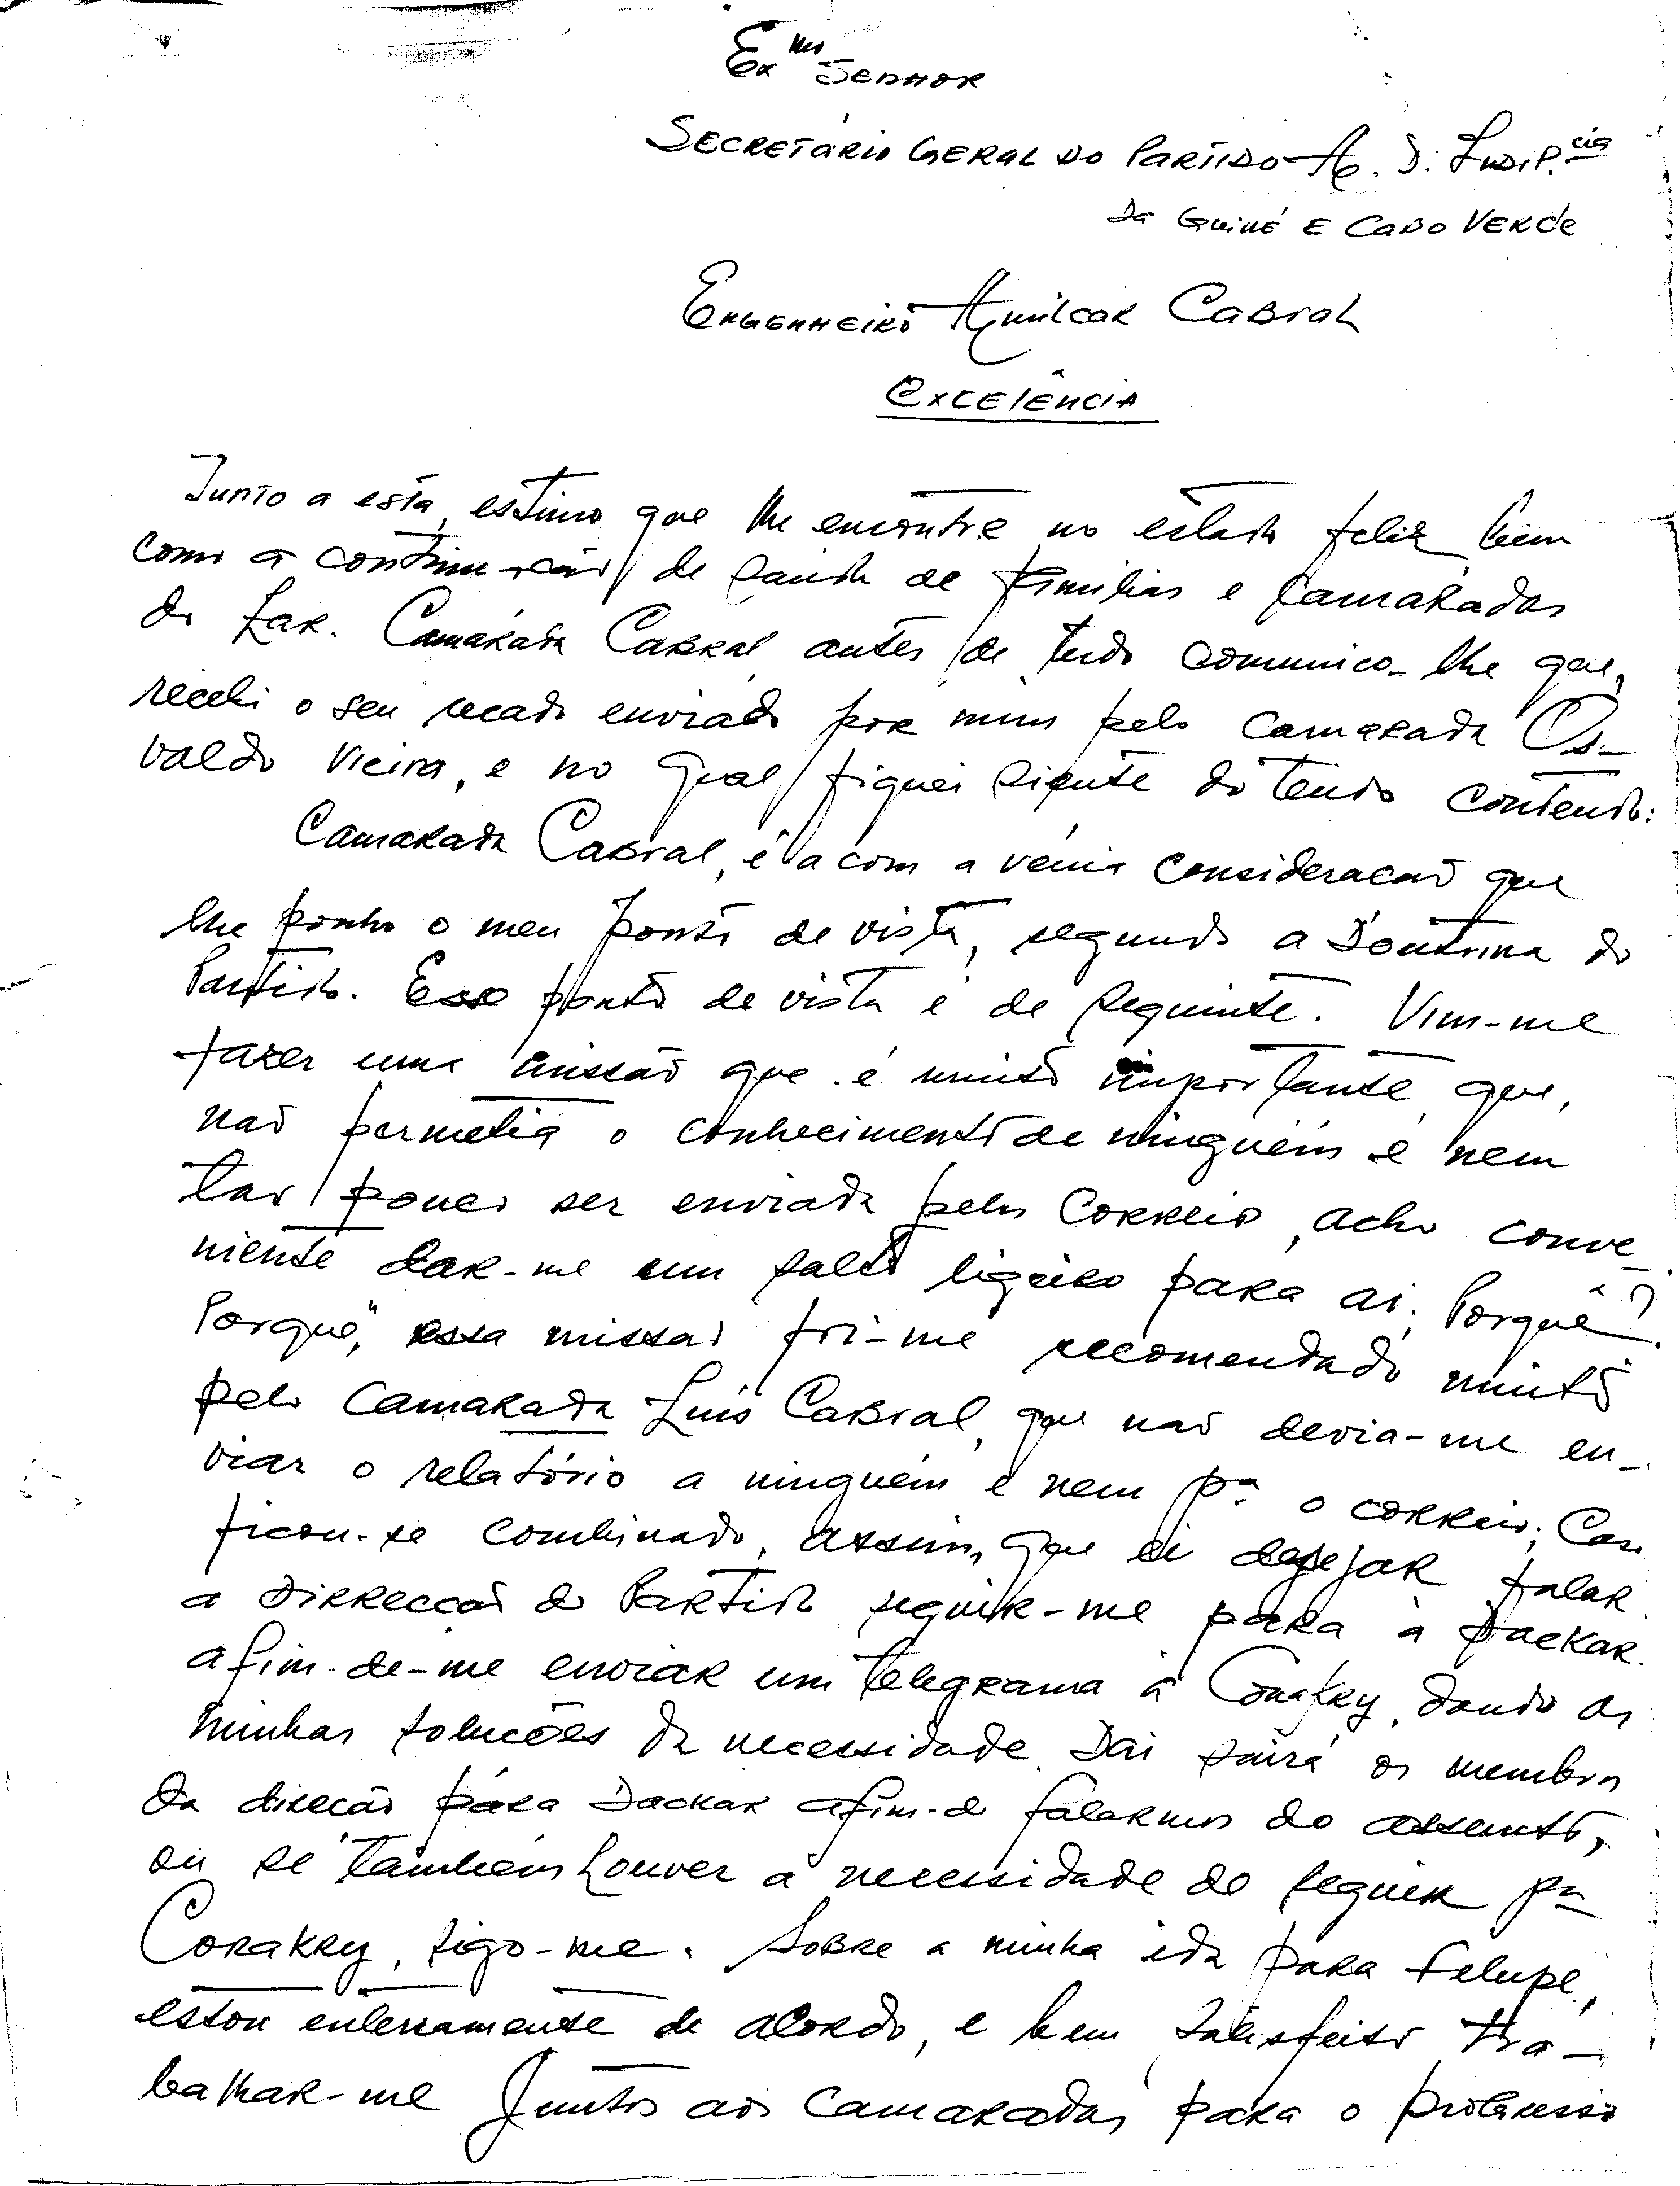 Ex mo SENHOR
SECRETÁRIO GERAL DO PARTIDO A. D. INDIP. cia
Da Guiné E CABO VERde
ENGENHEIRO Amilcar CABRAL
EXCELÊNCIA
Junto a esta, estimo que lhe encontre no estado feliz bem
como a continuação de saúde de familias e camarádas
do Lar. Camaráda CABRAL antes de tudo comunico-lhe que,
recebi o seu recado enviado por mim pelo camarada Os-
valdo Vieira, e no qual fiquei siente do tendo contendo:
Camarada Cabral, é a com a vénia consideração que
lhe ponho o meu ponto de vista, segundo a Doutrina do
Partido. Esse ponto de vista é de seguinte. Vim-me
fazer uma missão que é muito importante que,
não permetia o conhecimento de ninguém e nem
tão pouco ser enviada pelos Correio, acho conve-
niente dar-me um salto ligeiro para ai; Porquê?
Porquê, essa missão foi-me recomendado muito
pelo camarada Luis Cabral, que não devia-me en-
viar o relatório a ninguém e nem pª o correio; Caso
ficou-se combinado, assim, que si desejar falar
a Dirrecção do Partido seguir-me para à Dackar
afim-de-me enviar um telegrama à Conakry, dando as
minhas soluções da necessidade. Dai sairá os membros
da direcão pára Dackar afim-de falarmos do assunto,
ou se também houver a necessidade de seguir pª
Conakry, sigo-me. Sobre a minha ida para Felupe,
estou enteramente de acordo, e bem satisfeito tra-
balhar-me Juntos aos camaradas para o progresso